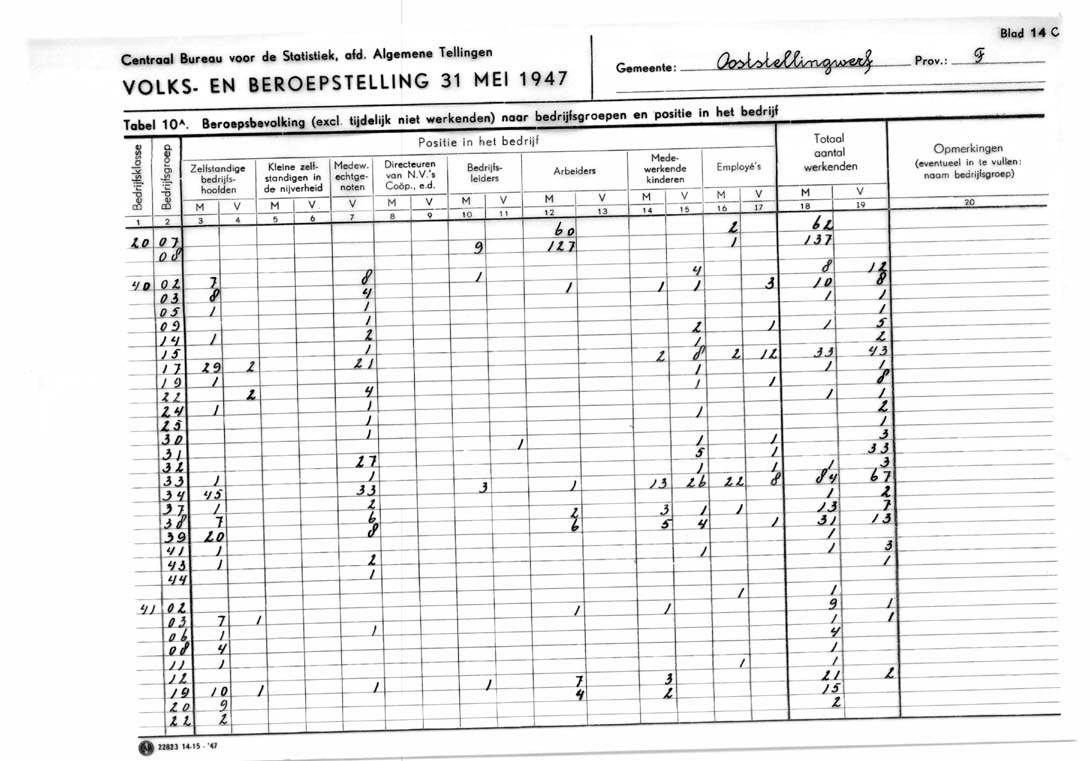 Blad 14 C
Centraal Bureau voor de Statistiek, afd. Algemene Tellingen
VOLKS- EN BEROEPSTELLING 31 MEI 1947
Gemeente: Ooststellingwerf Prov.: F
Tabel 10A. Beroepsbevolking (excl. tijdelijk niet werkenden) naar bedrijfsgroepen en positie in het bedrijf
Bedrijfsklasse
Bedrijfsgroep
Positie in het bedrijf
Zelfstandige bedrijfs-hoofden
Kleine zelf-standigen in de nijverheid
Medew. echtge-noten
Directeuren van N.V.'s Coöp., e.d.
Bedrijfs-leiders
Arbeiders
Mede-werkende kinderen
Employé's
Totaal aantal werkenden
Opmerkingen (eventueel in te vullen: naam bedrijfsgroep)
M V M V V M V M V M V M V M V M V
1 2 3 4 5 6 7 8 9 10 11 12 13 14 15 16 17 18 19 20
20 07 60 2 62
08 9 127 1 137
40 02 7 8 1 4 8 12
03 8 4 1 1 1 3 10 8
05 1 1 1 1
09 1 1
14 1 2 2 1 1 5
15 1 1 2
17 29 2 21 2 8 2 12 33 43
19 1 1 1 1
22 2 4 1 1 8
24 1 1 1 1
25 1 1 2
30 1 1
31 1 1 1 3
32 27 5 1 33
33 1 1 1 1 1 3
34 45 33 3 1 13 26 22 8 84 67
37 1 2 1 2
38 7 6 2 3 1 1 13 7
39 20 8 6 5 4 1 31 13
41 1 1
43 1 2 1 1 3
44 1 1
41 02 1 1
03 7 1 1 1 9 1
06 1 1 1 1
08 4 4
11 1 1
12 1 1
19 10 1 1 1 7 3 21 2
20 9 4 2 15
22 2 2
22823 14-15 - '47